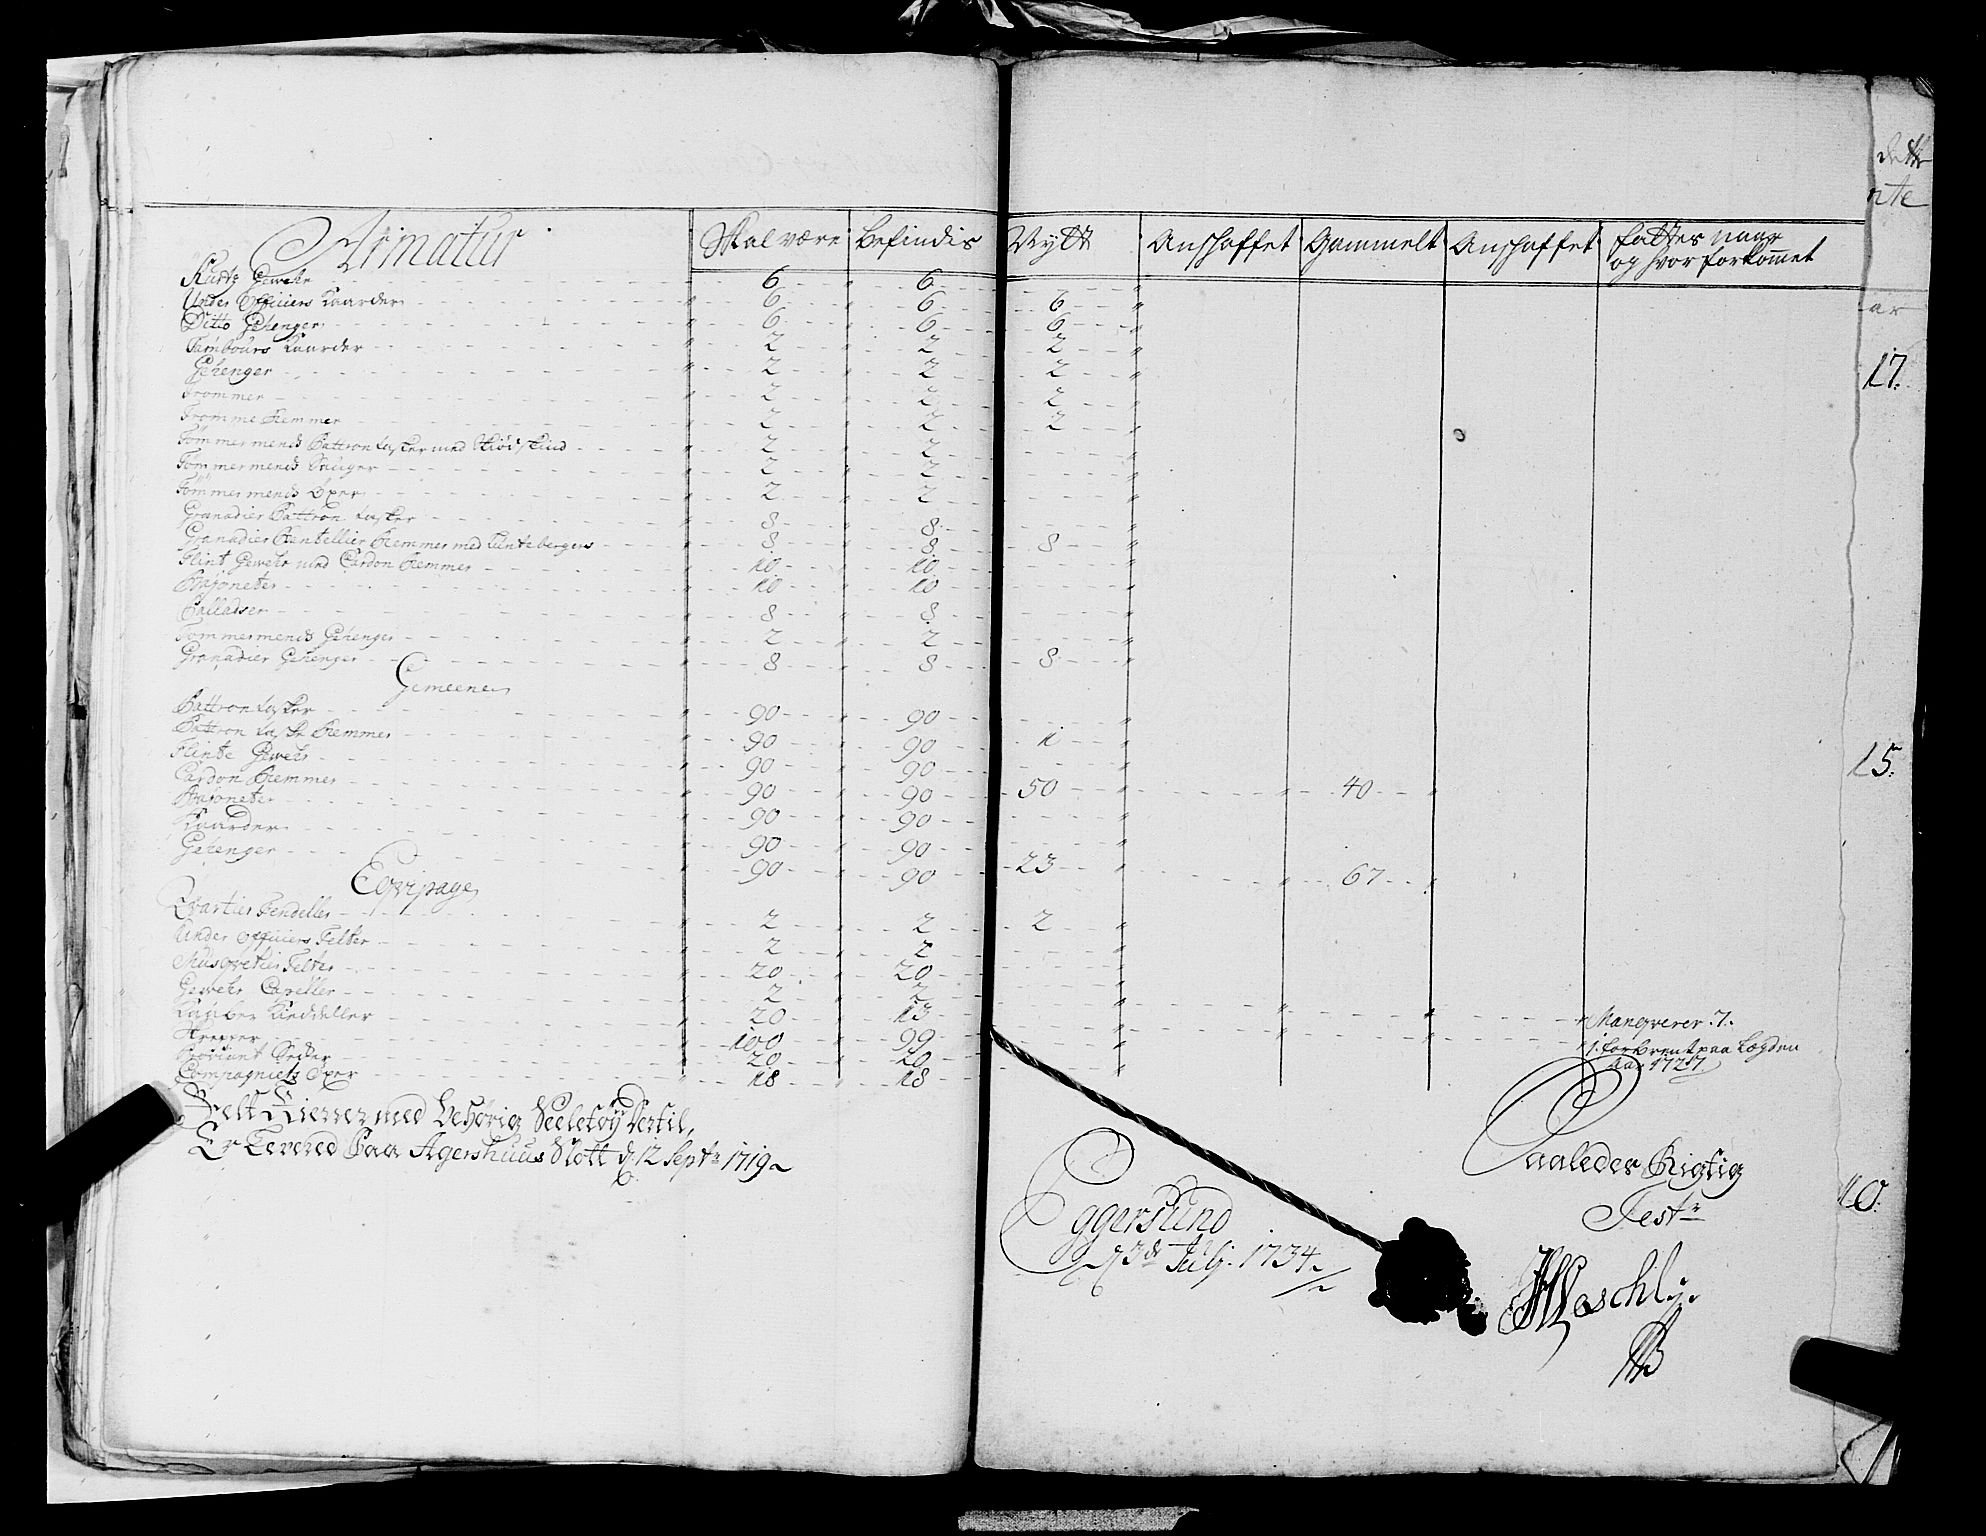 Armatur Skal være Befindis Nytt Anshaffet Gammelt Anshaffet fattes naar
og hvor forkommet
Kurtz Gewehr 6 6
Under Officiers Kaarder 6 6 6
Ditto Gehenger 6 6 6
Tambours Kaarder 2 2 2
Gehenger 2 2 2
Trommer 2 2 2
Tromme Remmer 2 2 2
Tömmermends Pattron tasker med Skiødskind 2 2
Tömmermends Sauger 2 2
Tömmermends Öxer 2 2
Granadier Pattron tasker 8 8
Granadier Bantellier Remmer med Luntebergers 8 8 8
Flint Gewehr med Cardon Remmer 10 10
Bajoneter 10 10
Palladser 8 8
Tommermends Gehenger 2 2
Granadier Gehenger 8 8 8
Gemeene
Pattron tasker 90 90
Pattron task Remmer 90 90 1
Flinte Gewehr 90 90
Cardon Remmer 90 90 50 40
Bajoneter 90 90
Kaarder 90 90
Gehenger 90 90 23 67
Eqvipage
Qvartier Fendeller 2 2 2
Under Officiers Telter 2 2
Musqvetier Telter 20 20
Gewehr Capeller 2 2
Kaaber Kieddeller 20 13 Manqverer 7.
Krepper 100 99 1. forbrent paa Lægden
Aar 1727
Proviant Sekker 20 20
Compagniets Öxer 18 18
Felt Kierrer med behørig Seeletøy Dertil,
Er Levered Paa Agershuus Slott d. 12 Septr 1719
Saaledes Rigtig
Testr
Eggersund
d 3de Julij. 1734
dette
nte
ar
17.
15.
10.